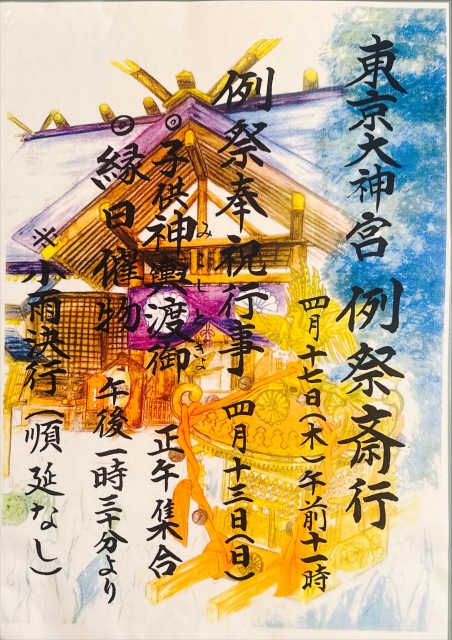 東京大神宮 例祭斎行
四月十七日(木)午前十一時
例祭奉祝行事 四月十三日(日)
◎子供神輿渡御 正午集合
みこしとぎょ
◎縁日催物 午後一時三十分より
※小雨決行(順延なし)